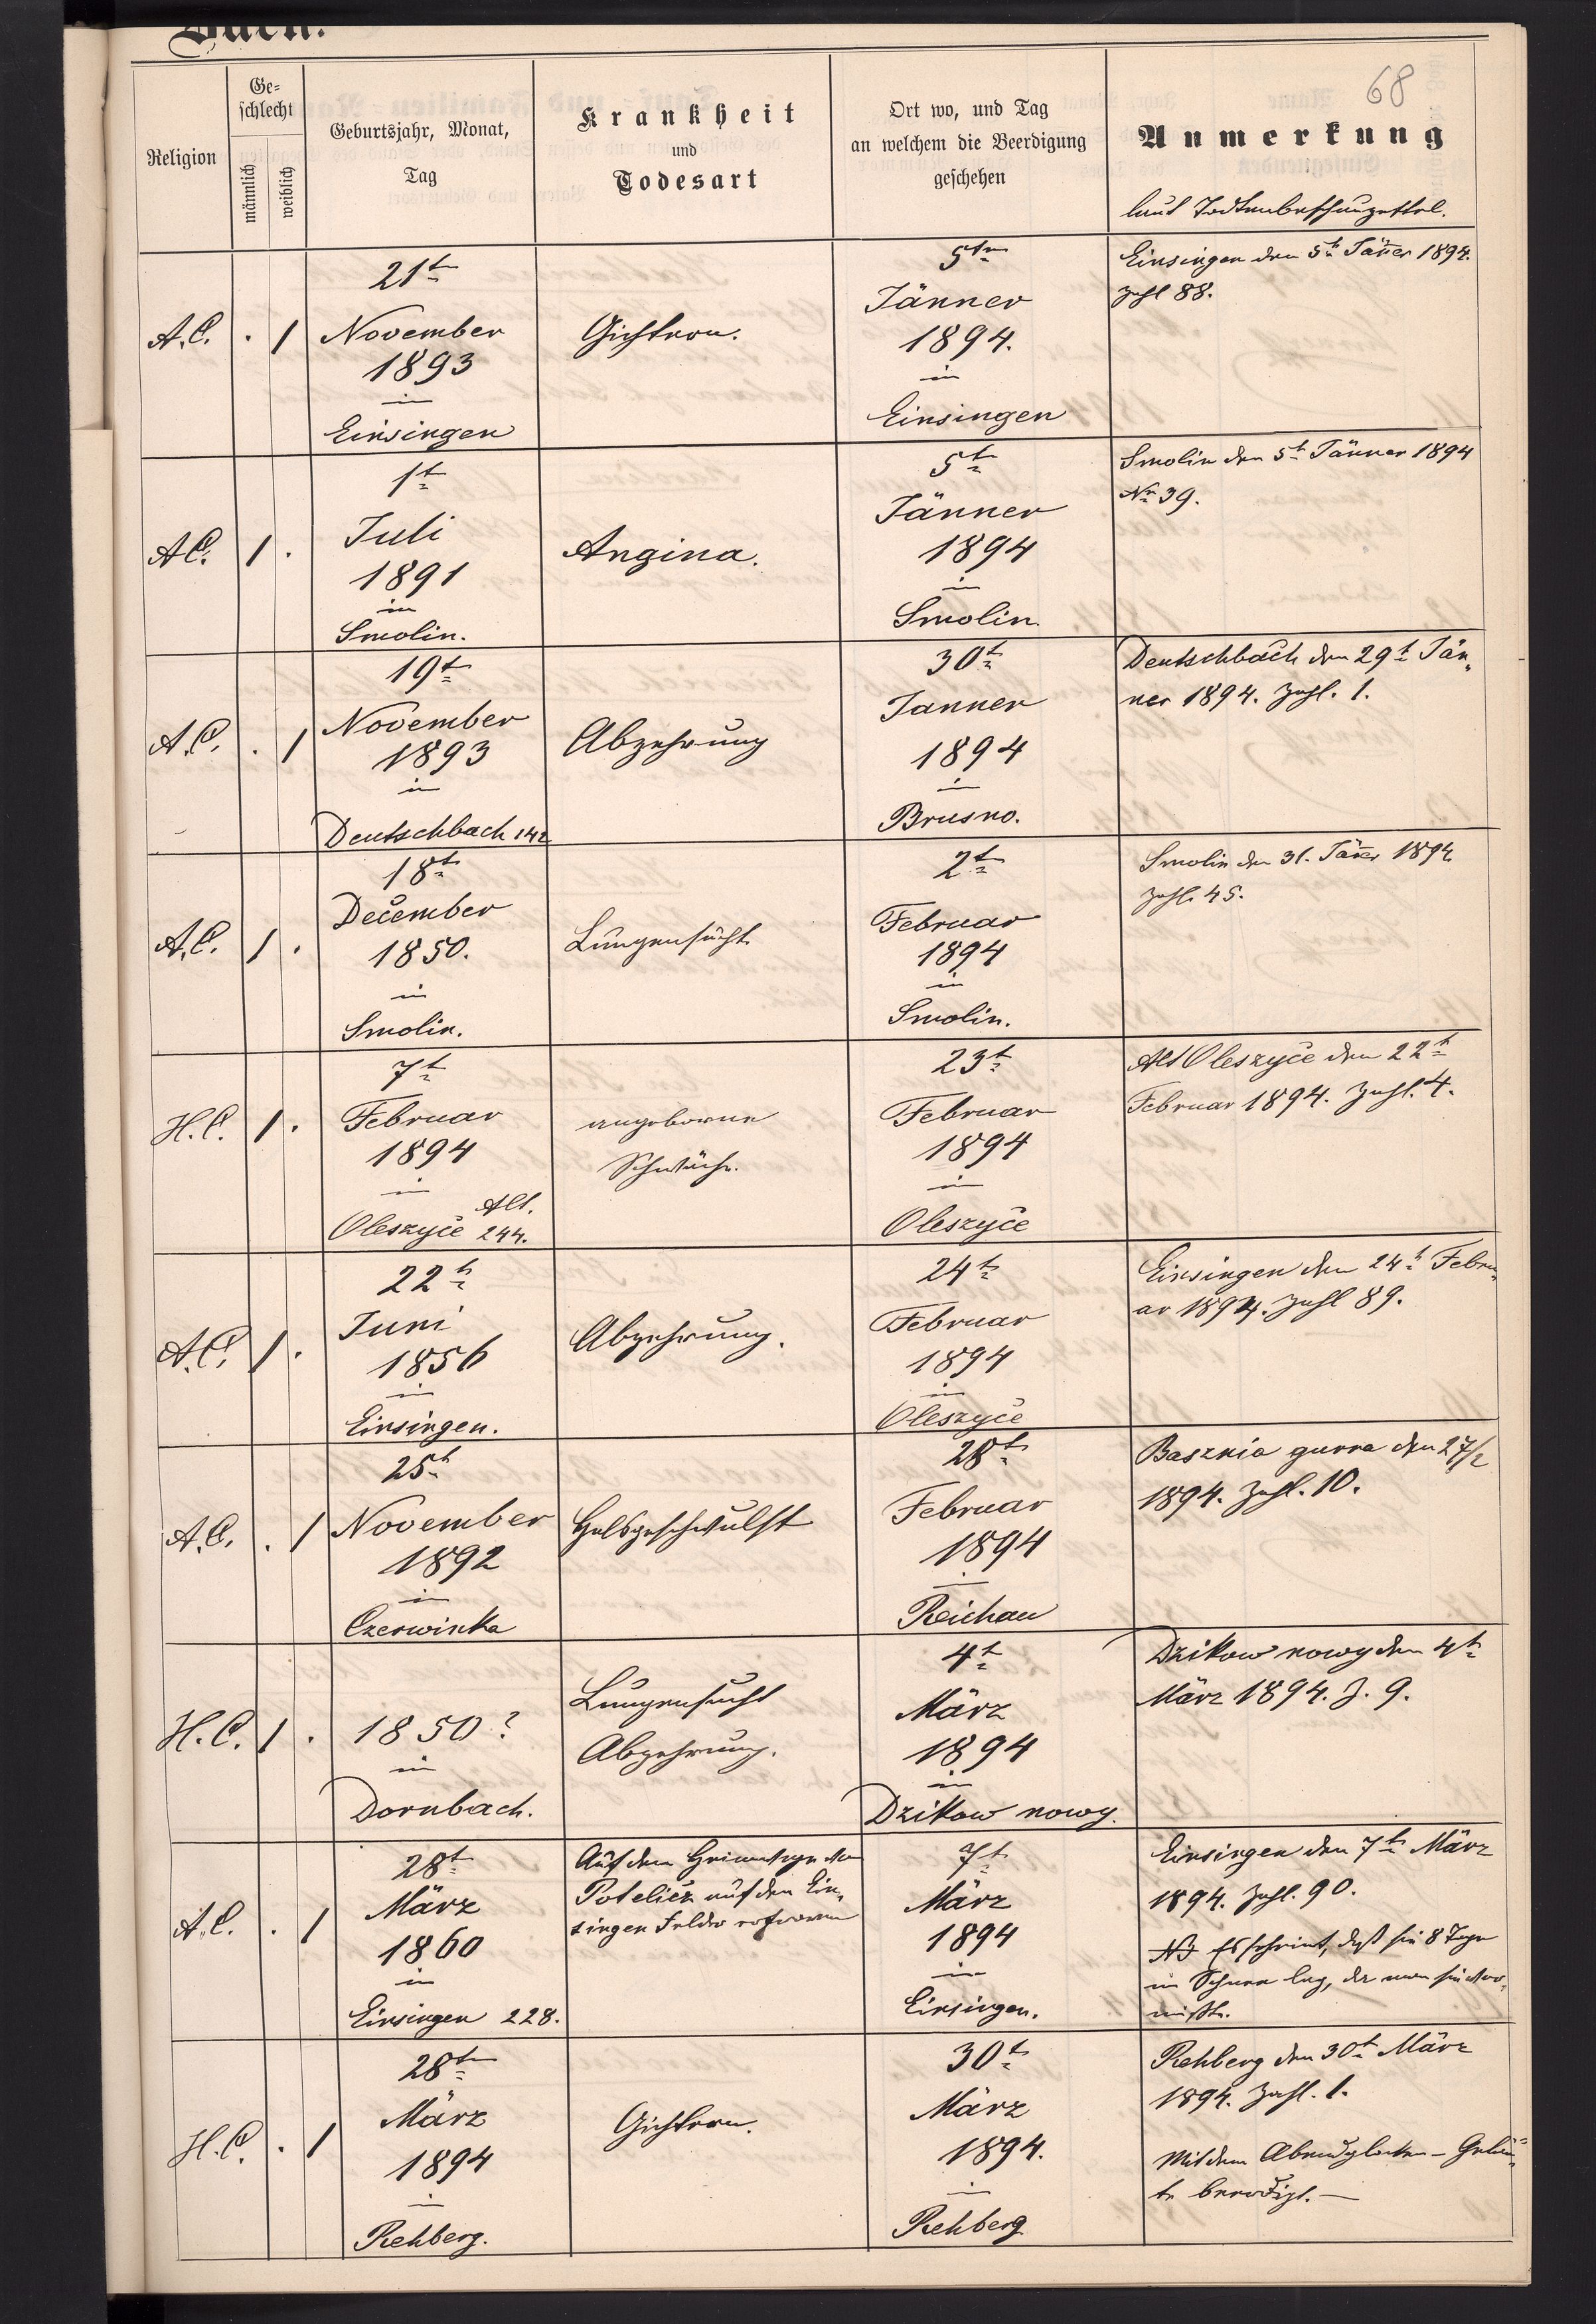 Buch.
68
Religion
Ge=
schlecht
männlich
weiblich
Geburtsjahr, Monat,
Tag
Krankheit
und
Todesart
Ort wo, und Tag
an welchem die Beerdigung
geschehen
Anmerkung
laut Todtenbeschauzettel.
A.C. . 1
21t
November
1893
in
Einsingen
Gichtern.
5tn
Jänner
1894.
in
Einsingen
Einsingen den 5t Jänner 1894.
Zahl 88.
A C. 1 .
1t
Juli
1891
in
Smolin.
Angina.
5t
Jänner
1894
in
Smolin.
Smolin den 5t Jänner 1894
Nr 39.
A.C. . 1
19t
November
1893
in
Deutschbach 142
Abzehrung
30t
Janner
1894
in
Brusno.
Deutschbach den 29t Jän„
ner 1894. Zahl. 1.
A.C. 1 .
18t
December
1850.
in
Smolin.
Lungensucht
2t
Februar
1894
in
Smolin.
Smolin den 31. Jäner 1894
Zahl. 45.
H.C. 1 .
7t
Februar
1894
in
Alt.
Oleszyce 244.
angeborne
Schwäche.
23t
Februar
1894
in
Oleszyce
Alt Oleszyce den 22t
Februar 1894. Zahl. 4.
A.C. 1 .
22t
Juni
1856
in
Einsingen.
Abzehrung.
24t
Februar
1894
in
Oleszyce
Einsingen den 24t Febru„
ar 1894. Zahl 89.
A.C. . 1
25t
November
1892
in
Czerwinka
Halsgeschwulst
28t
Februar
1894
in
Reichau
Basznia gurna den 27/2
1894. Zahl. 10.
H.C. 1 .
1850?
in
Dornbach.
Lungensucht
Abzehrung.
4t
März
1894
in
Dzikow nowy.
Dzikow nowy den 4t
März 1894. Z. 9.
A.C. . 1
28t
März
1860
in
Einsingen 228.
Auf dem Heimwege von
Potelicz auf den Ein„
singen Felder erfroren
7t
März
1894
in
Einsingen.
Einsingen den 7t März
1894. Zahl. 90.
NB Es scheint, daß sie 8 Tage
im Schnee lag, da man sie ver„
mißte.
H.C. . 1
28t
März
1894
in
Rehberg.
Gichtern.
30t
März
1894.
in
Rehberg
Rehberg den 30t März
1894. Zahl. 1.
Mit dem Abendglocken-Geläu„
te beerdigt.—